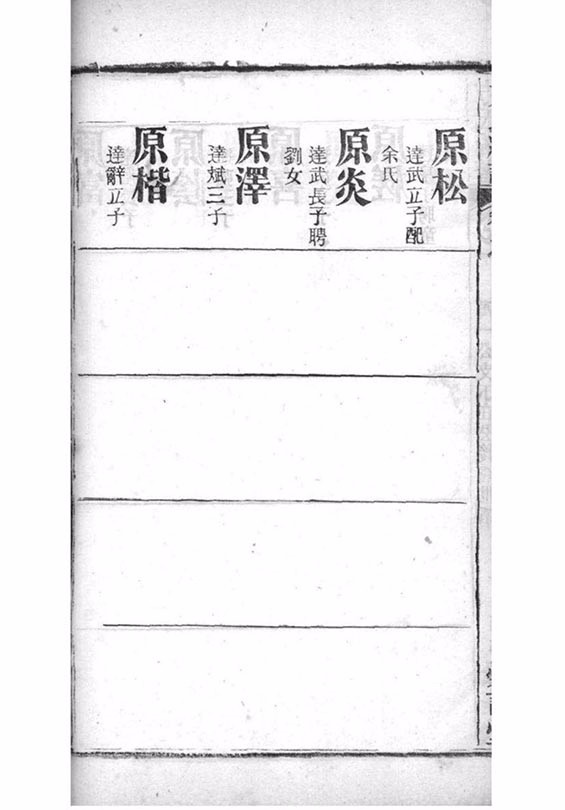 原松
達武立子配
余氏
原炎
達武長子聘
劉女
原澤
達斌三子
原楷
達辭立子